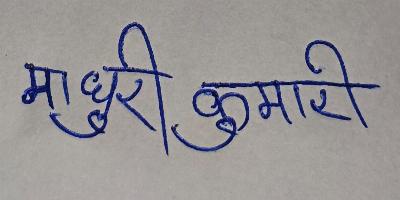 माधुरी कुमारी